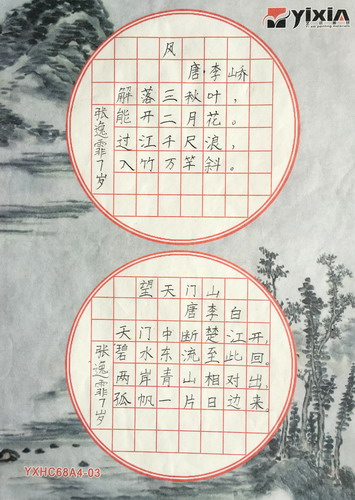 YIXIN
风
唐·李峤
解落三秋叶，
能开二月花。
过江千尺浪，
入竹万竿斜。
张逸霏7岁
望天门山
唐李白
天门中断楚江开，
碧水东流至此回。
两岸青山相对出，
孤帆一片日边来。
张逸霏7岁
YXHC68A4-03